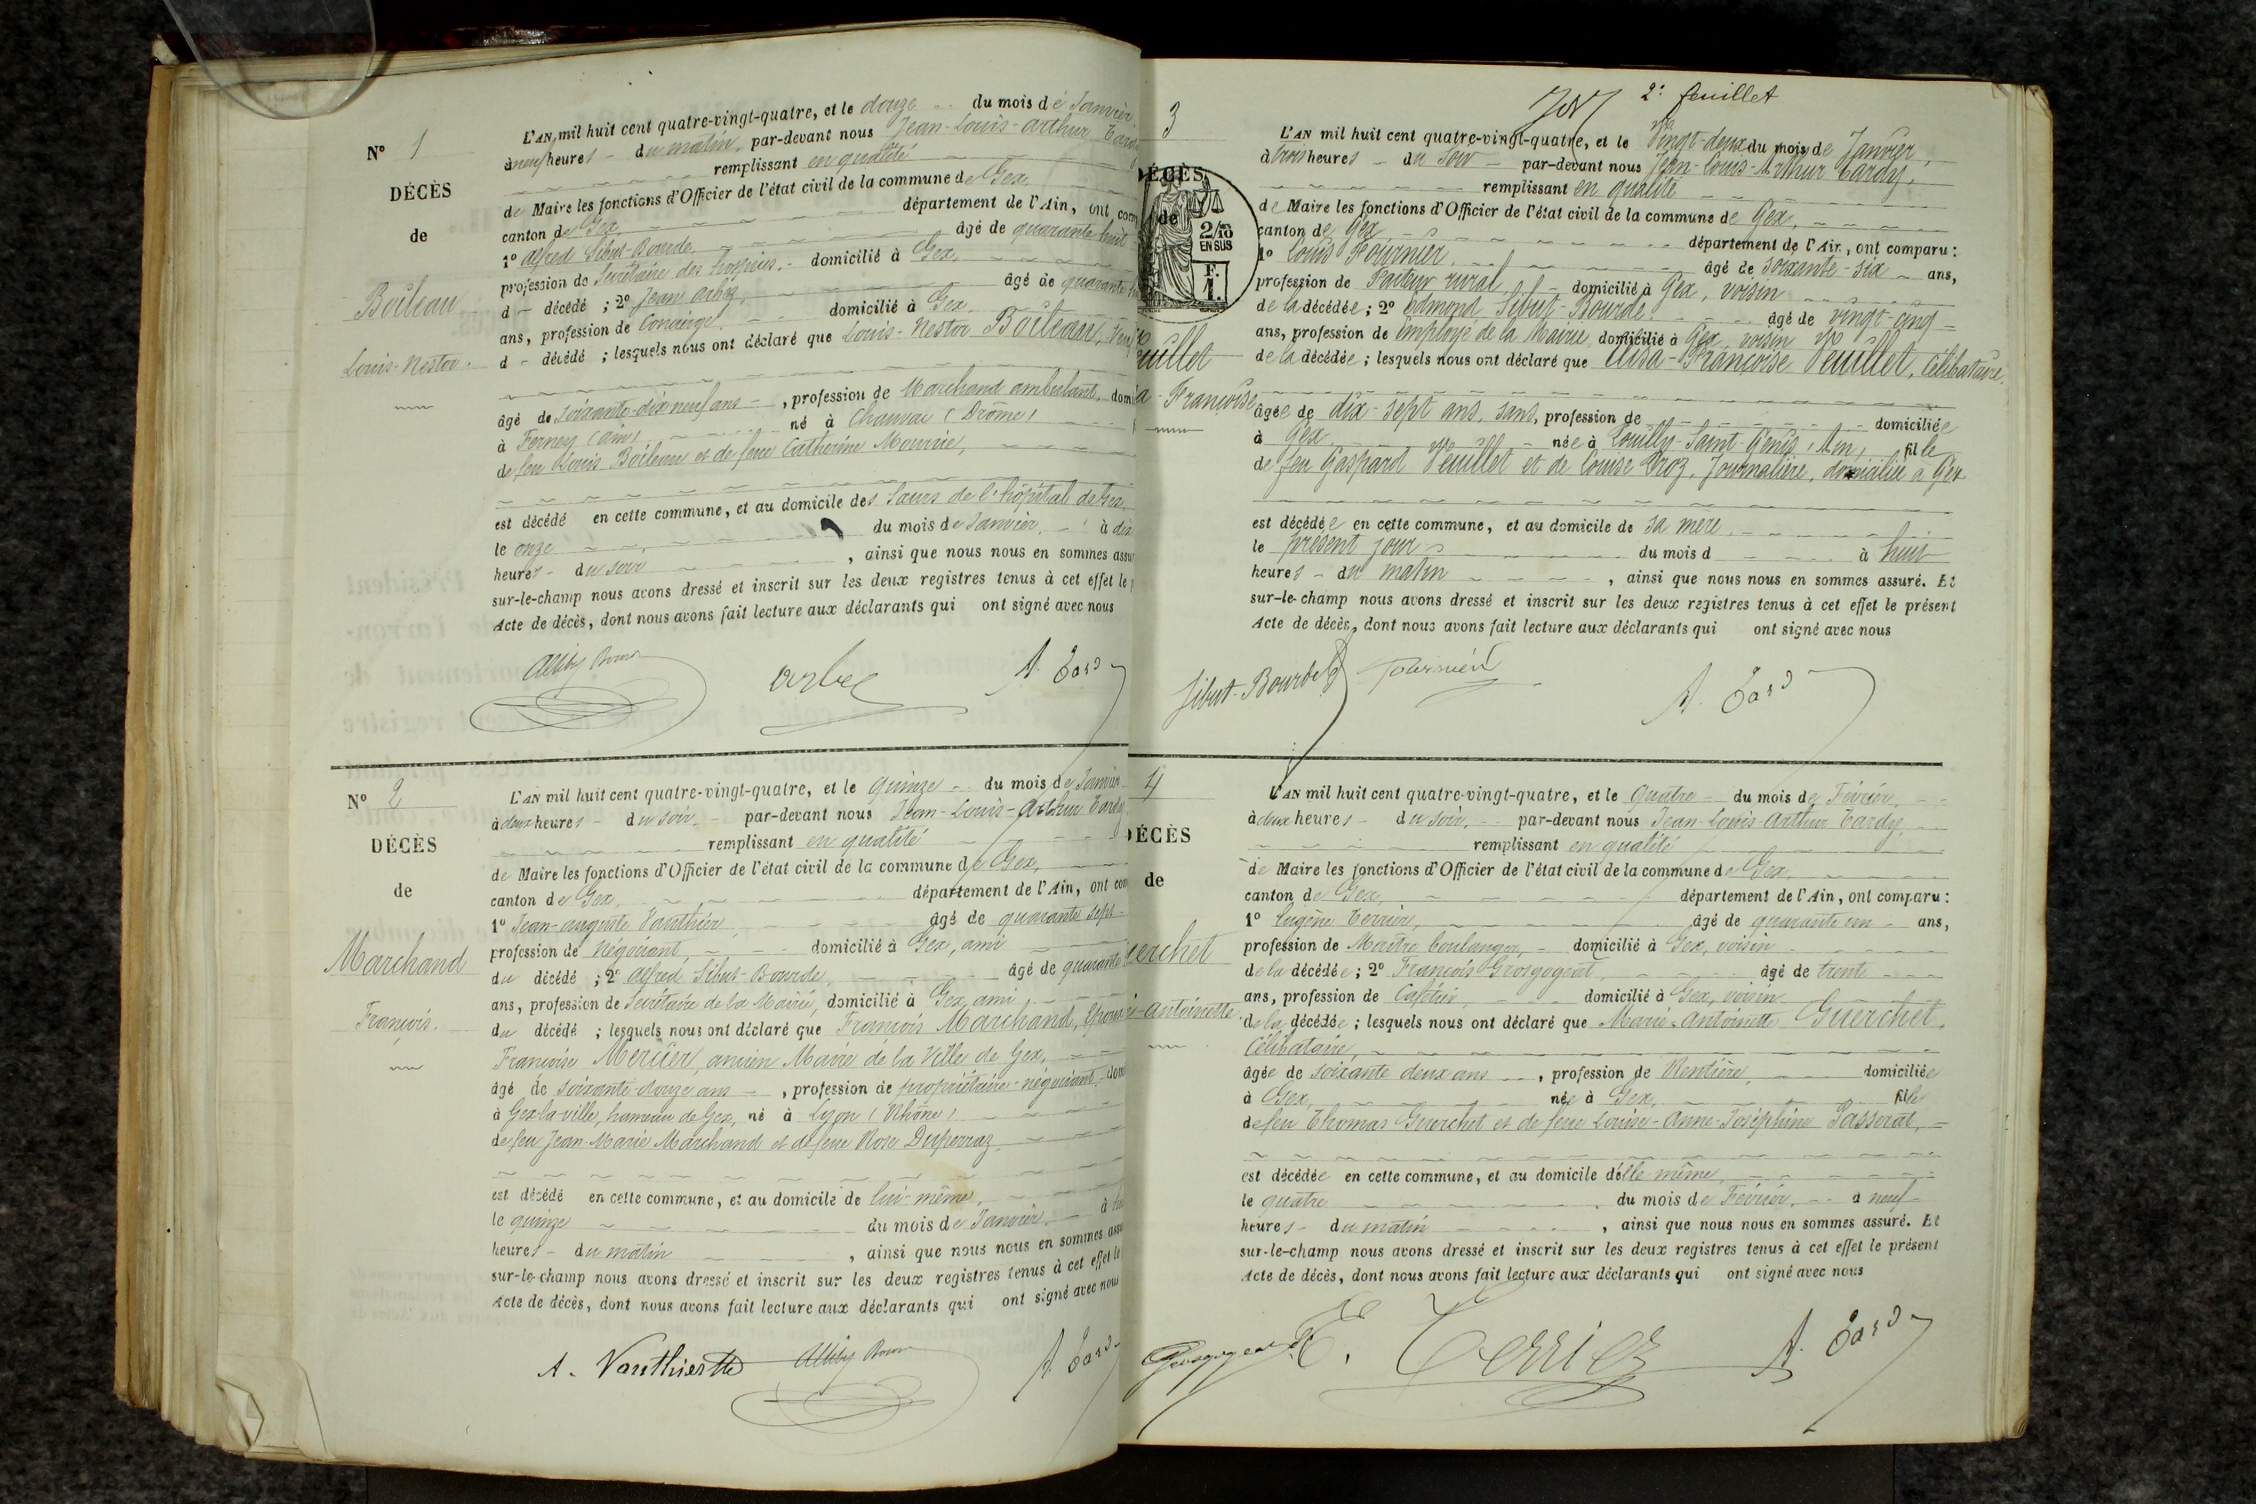 N° 1
DÉCÈS
de
Boileau
Louis-Nestor.
L'AN mil huit cent quatre-vingt-quatre, et le douze du mois de Janvier
à neuf heures du matin, par-devant nous Jean-Louis-Arthur Tardy
remplissant en qualité
de Maire les fonctions d'Officier de l'état civil de la commune de Gex,
canton de Gex, département de l'Ain, ont com
1° Alfred Sibut-Bourde, âgé de quarante huit
profession de Secrétaire des hospices, domicilié à Gex,
d décédé ; 2° Jean Arbez, âgé de quarante
ans, profession de Concierge, domicilié à Gex
d décédé ; lesquels nous ont déclaré que Louis-Nestor Boileau,
âgé de soixante-dix neuf ans, profession de Marchand ambulant, dom
à Ferney (Ain) né à Chauvac (Drôme)
de feu Louis Boileau et de feue Catherine Mourrie,
est décédé en cette commune, et au domicile des Sœurs de l'hôpital de Gex,
le onze du mois de Janvier, à dix
heures du soir, ainsi que nous nous en sommes assu
sur-le-champ nous avons dressé et inscrit sur les deux registres tenus à cet effet le p
Acte de décès, dont nous avons fait lecture aux déclarants qui ont signé avec nous
Arbez A. Tardy
N° 2
DÉCÈS
de
Marchand
François.
L'AN mil huit cent quatre-vingt-quatre, et le quinze du mois de Janvier
à deux heures du soir, par-devant nous Jean-Louis-Arthur Tardy
remplissant en qualité
de Maire les fonctions d'Officier de l'état civil de la commune de Gex,
canton de Gex, département de l'Ain, ont com
1° Jean-Auguste Vauthier, âgé de quarante sept
profession de Négociant, domicilié à Gex, ami
du décédé ; 2° Alfred Sibut-Bourde, âgé de quarante
ans, profession de Secrétaire de la Mairie, domicilié à Gex, ami
du décédé ; lesquels nous ont déclaré que François Marchand, Epoux
Françoise Mercier, ancien Maire de la Ville de Gex,
âgé de soixante-douze ans, profession de propriétaire-négociant, dom
à Gex-la-ville, hameau de Gex, né à Lyon (Rhône)
de feu Jean-Marie Marchand et de feue Rose Duperraz,
est décédé en cette commune, et au domicile de lui-même,
le quinze du mois de Janvier, à
heures du matin, ainsi que nous nous en sommes assu
sur-le-champ nous avons dressé et inscrit sur les deux registres tenus à cet effet le
Acte de décès, dont nous avons fait lecture aux déclarants qui ont signé avec nous
A. Vauthier A. Tardy
2e feuillet
3
DÉCÈS
de
2/10 EN SUS
euillet
a-Françoise
L'AN mil huit cent quatre-vingt-quatre, et le Vingt-deux du mois de Janvier,
à trois heures du soir par-devant nous Jean-Louis-Arthur Tardy,
remplissant en qualité
de Maire les fonctions d'Officier de l'état civil de la commune de Gex,
canton de Gex, département de l'Ain, ont comparu :
1° Louis Fournier, âgé de soixante-six ans,
profession de Facteur rural, domicilié à Gex, voisin
de la décédée ; 2° Edmond Sibut-Bourde, âgé de vingt-cinq
ans, profession de Employé de la Mairie, domicilié à Gex, voisin
de la décédée ; lesquels nous ont déclaré que Elisa-Françoise Veuillet, célibataire,
âgée de dix-sept ans, sans, profession de domiciliée
à Gex, née à Pouilly-Saint-Genis (Ain) fille
de feu Gaspard Veuillet et de Louise Droz, Journalière, domiciliée à Gex
est décédée en cette commune, et au domicile de sa mère
le présent jour du mois d à huit
heures du matin, ainsi que nous nous en sommes assuré. Et
sur-le-champ nous avons dressé et inscrit sur les deux registres tenus à cet effet le présent
Acte de décès, dont nous avons fait lecture aux déclarants qui ont signé avec nous
Sibut-Bourde Fournier A. Tardy
4
DÉCÈS
de
uerchet
ie-Antoinette
L'AN mil huit cent quatre-vingt-quatre, et le quatre du mois de Février,
à deux heures du soir, par-devant nous Jean-Louis-Arthur Tardy,
remplissant en qualité
de Maire les fonctions d'Officier de l'état civil de la commune de Gex,
canton de Gex, département de l'Ain, ont comparu :
1° Eugène Terrier, âgé de quarante un ans,
profession de Maître boulanger, domicilié à Gex, voisin
de la décédée ; 2° François Grosgogeat, âgé de trente
ans, profession de Cafetier, domicilié à Gex, voisin
de la décédée ; lesquels nous ont déclaré que Marie-Antoinette Guerchet,
Célibataire,
âgée de soixante deux ans, profession de Rentière, domiciliée
à Gex, née à Gex, fille
de feu Thomas Guerchet et de feue Louise-Anne-Joséphine Passerat,
est décédée en cette commune, et au domicile d'elle même,
le quatre du mois de Février, à neuf
heures du matin, ainsi que nous nous en sommes assuré. Et
sur-le-champ nous avons dressé et inscrit sur les deux registres tenus à cet effet le présent
Acte de décès, dont nous avons fait lecture aux déclarants qui ont signé avec nous
Grosgogeat E. Terrier A. Tardy